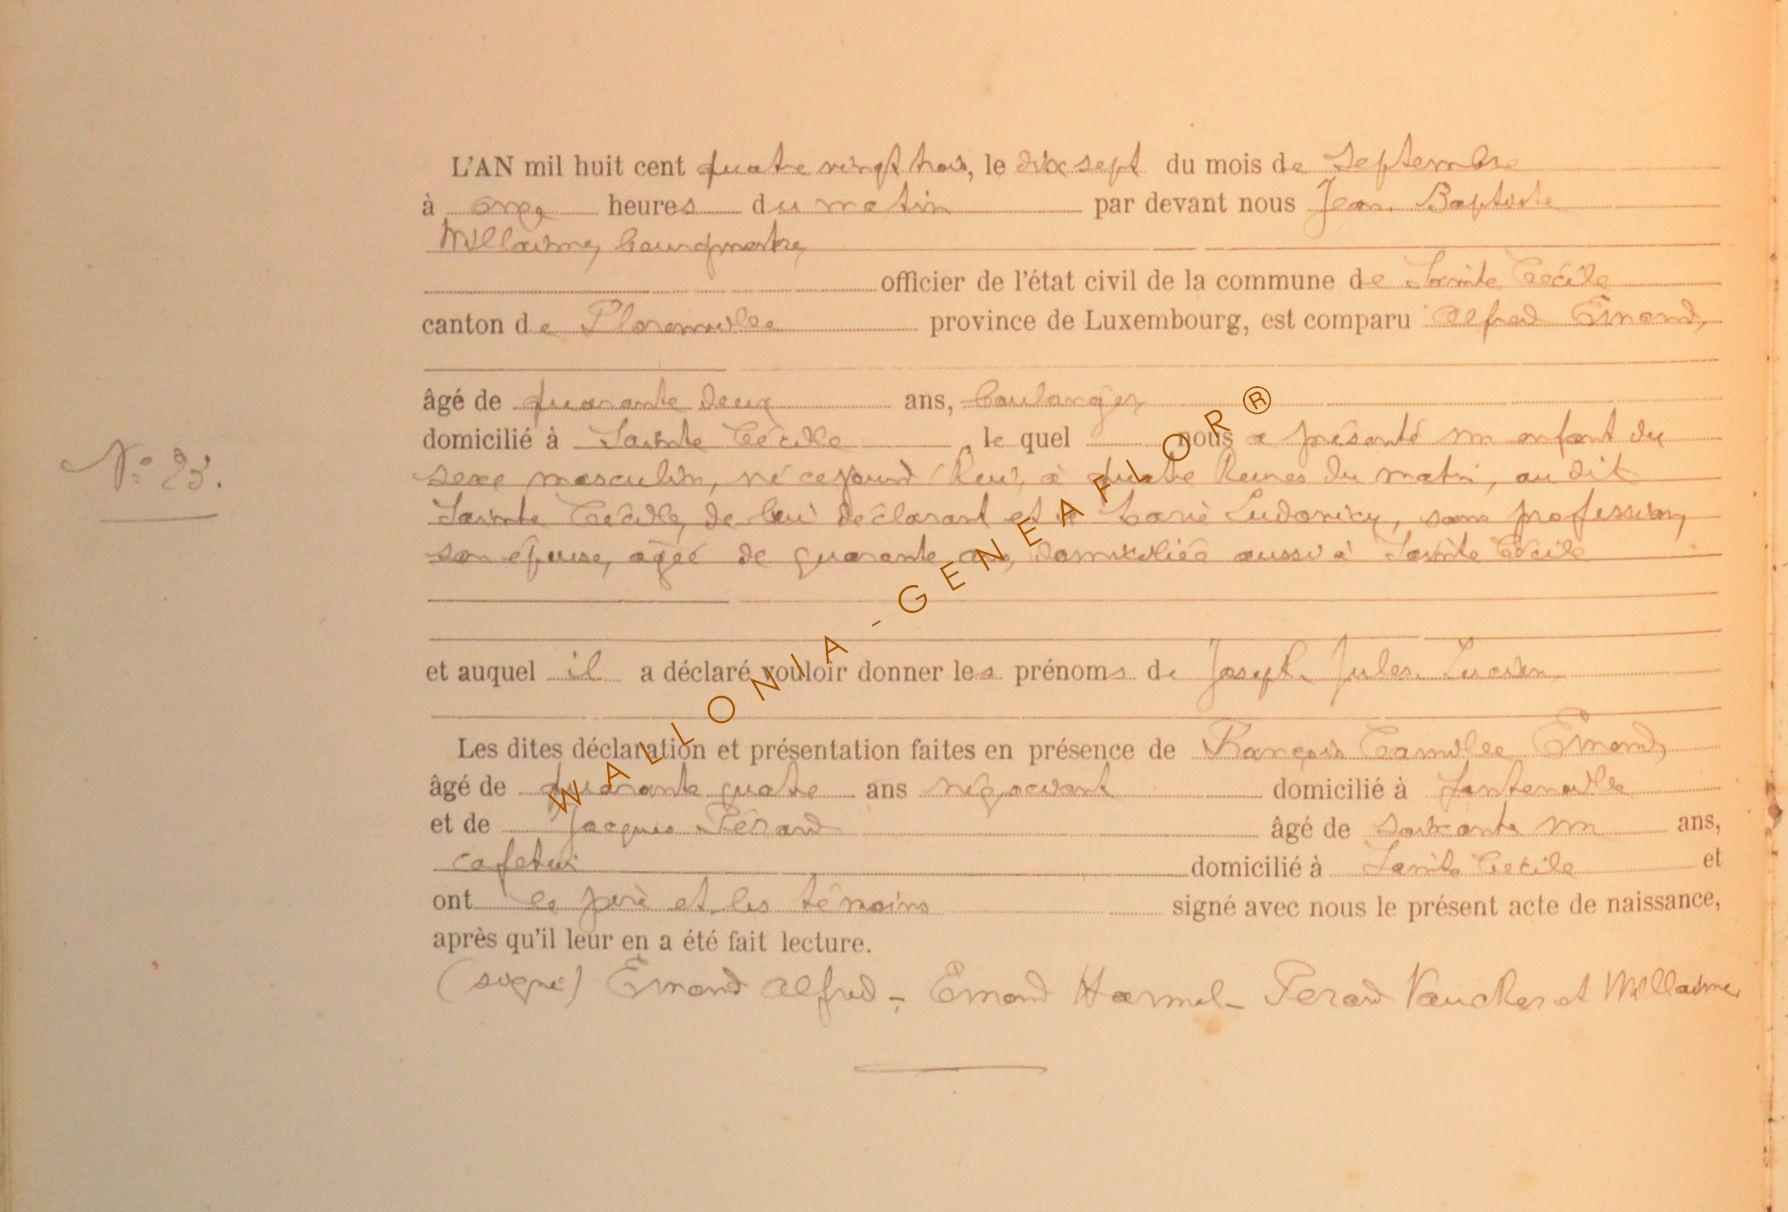 L'AN mil huit cent quatre vingt trois, le dix sept du mois de Septembre
à onze heures du matin par devant nous Jean Baptiste
Millaime, bourgmestre,
officier de l'état civil de la commune de Sainte Cécile
canton de Florenville province de Luxembourg, est comparu Alfred Emond,
âgé de quarante deux ans, boulanger
domicilié à Sainte Cécile, le quel nous a présenté un enfant du
N° 23.
sexe masculin, né cejourd'hui, à quatre heures du matin, au dit
Sainte Cécile, de lui déclarant et de Marie Ludovicy, sans profession,
son épouse, agée de quarante ans, domiciliée aussi à Sainte Cécile
et auquel il a déclaré vouloir donner les prénoms de Joseph Jules Lucien
Les dites déclaration et présentation faites en présence de François Camille Emond,
âgé de quarante quatre ans négociant domicilié à Fontenoille
et de Jacques Pérard âgé de soixante un ans,
cafetier domicilié à Sainte Cécile et
ont le père et les témoins signé avec nous le présent acte de naissance,
après qu'il leur en a été fait lecture.
(signé) Emond Alfred - Emond Harmel - Perard Vaucher et Millaime
WALLONIA-GENEAFLOR®